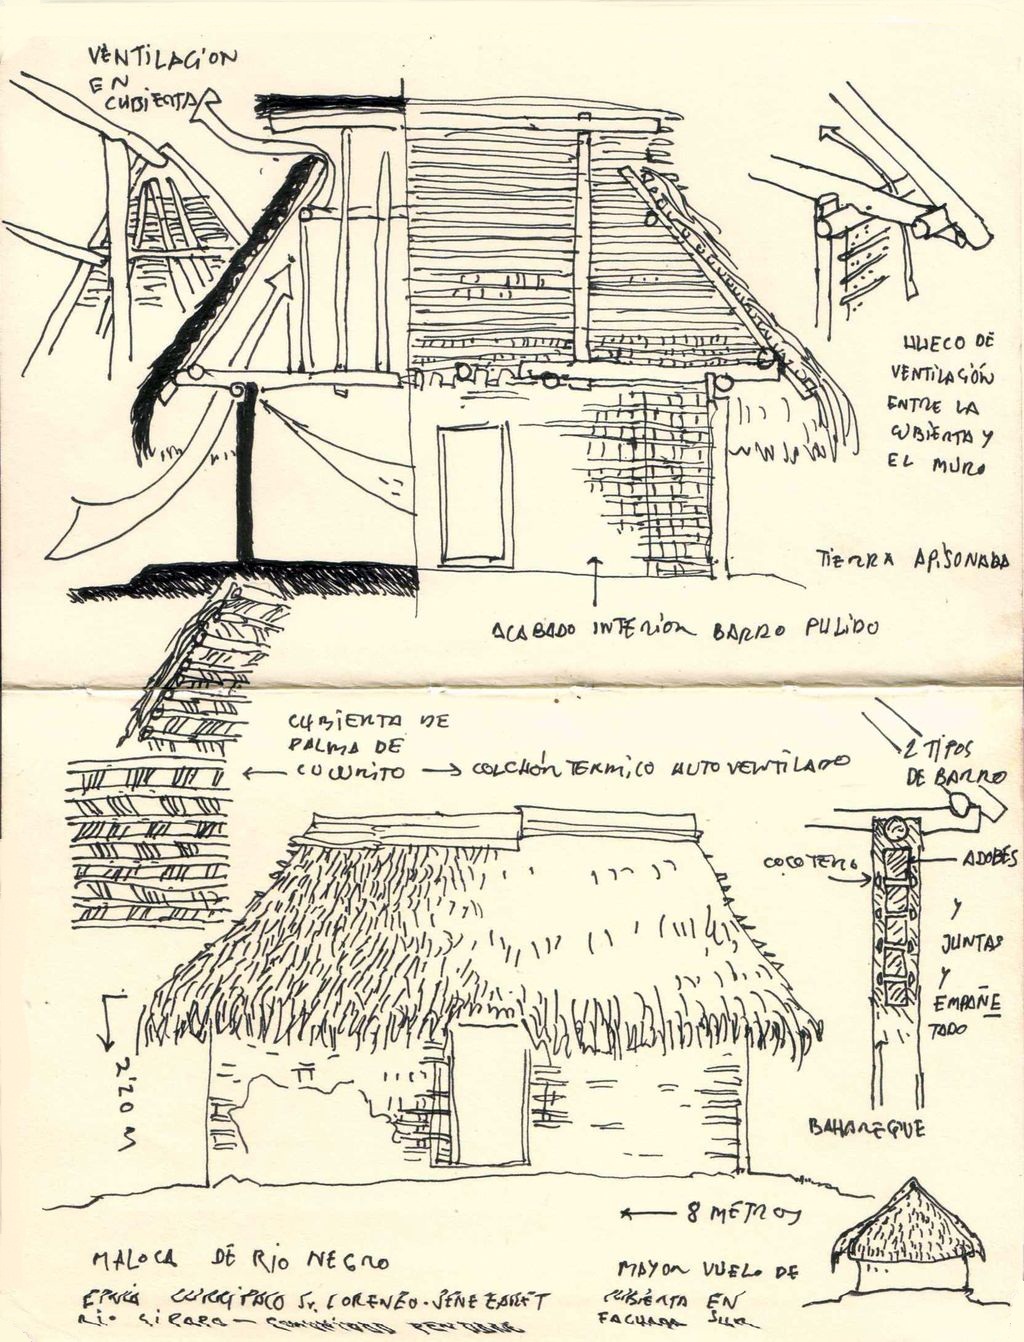 VENTILACION
EN
CUBIERTA
HUECO DE
VENTILACIÓN
ENTRE LA
CUBIERTA Y
EL MURO
TIERRA APISONADA
ACABADO INTERIOR BARRO PULIDO
CUBIERTA DE
PALMA DE
CUCURITO
COLCHÓN TERMICO AUTOVENTILADO
2 TIPOS
DE BARRO
COCOTERO
ADOBES
Y
JUNTAS
Y
EMPAÑE
TADO
2'20 M
BAHAREQUE
8 METROS
MALOCA DE RIO NEGRO
MAYOR VUELO DE
CUBIERTA EN
FACHADA SUR
LORENZO